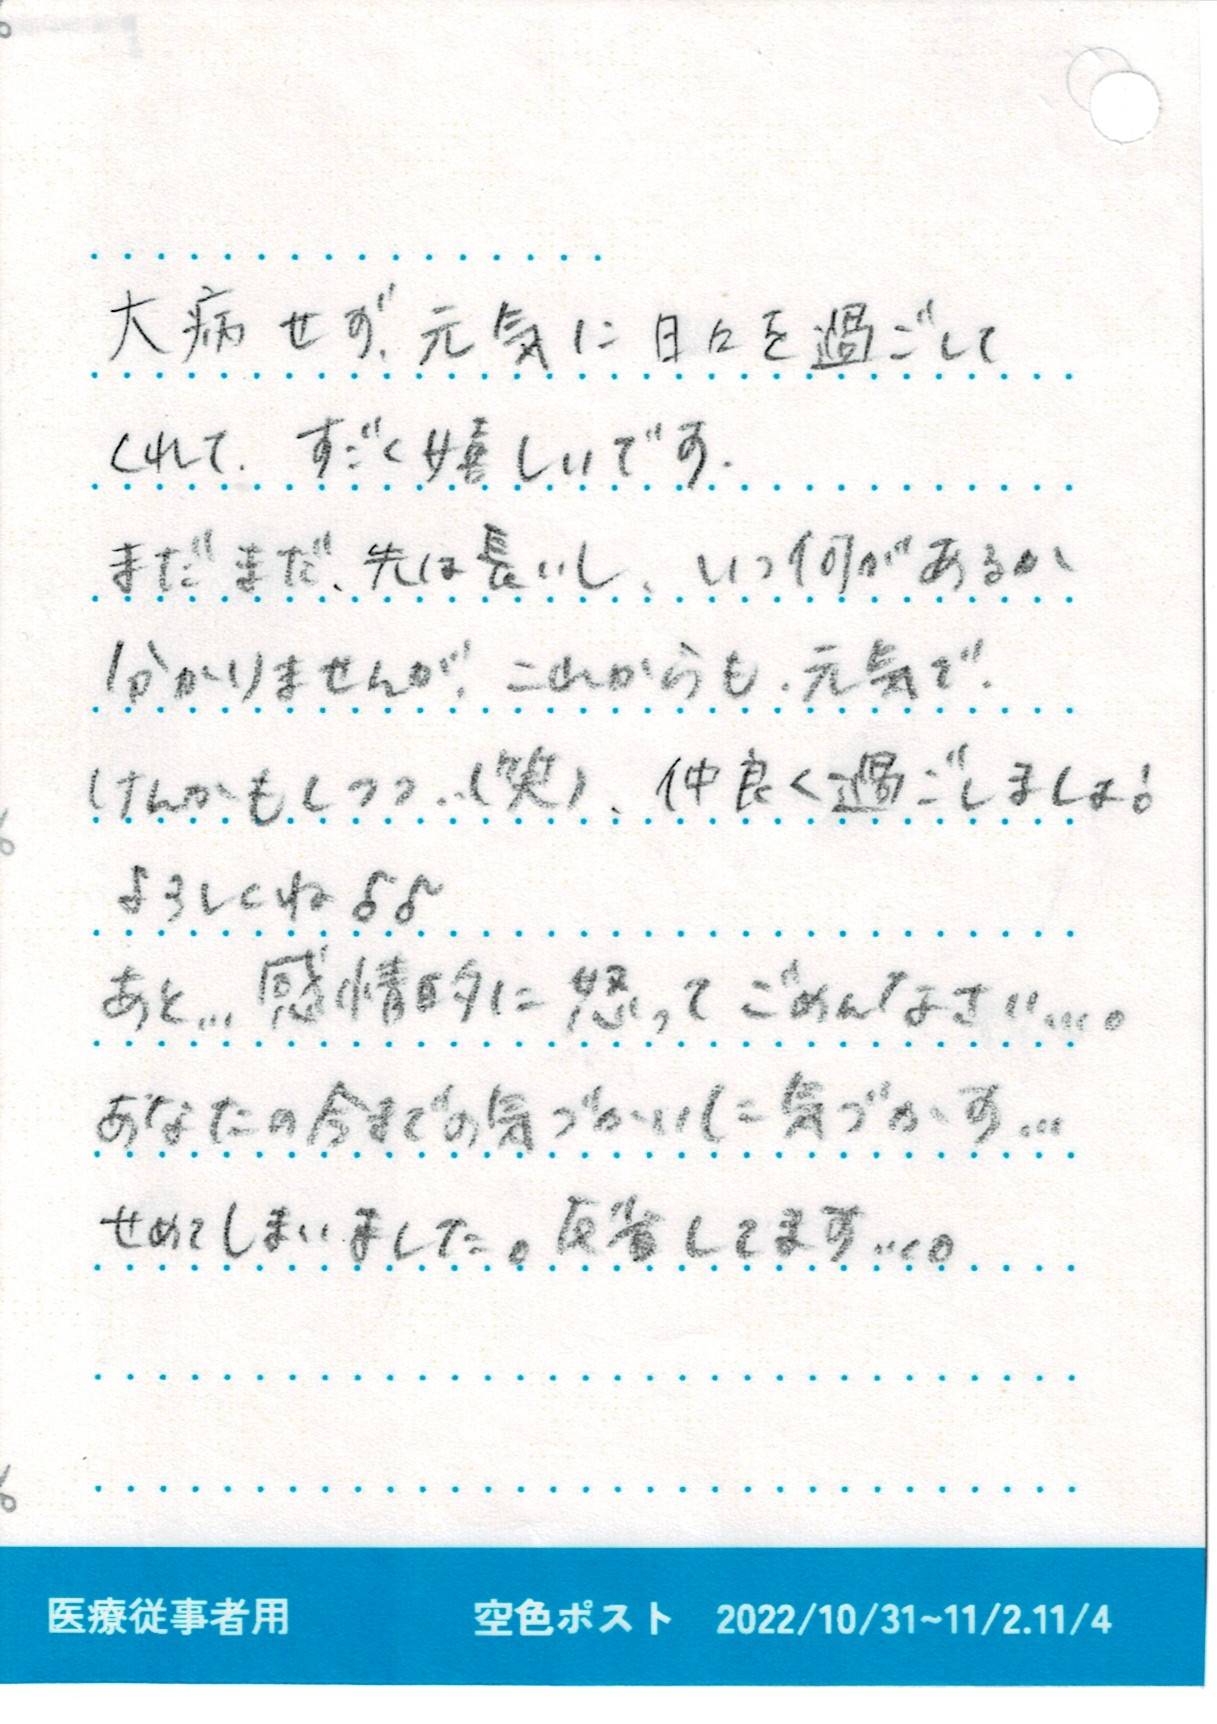 大病せず、元気に日々を過ごして
くれて、すごく嬉しいです。
まだまだ、先は長いし、いつ何があるか
分かりませんが、これからも、元気で、
けんかもしつつ..(笑)、仲良く過ごしましょ!
よろしくね♪♪
あと...感情的に怒ってごめんなさい....。
あなたの今までの気づかいに気づかず...
せめてしまいました。反省してます...。
医療従事者用 空色ポスト 2022/10/31~11/2.11/4